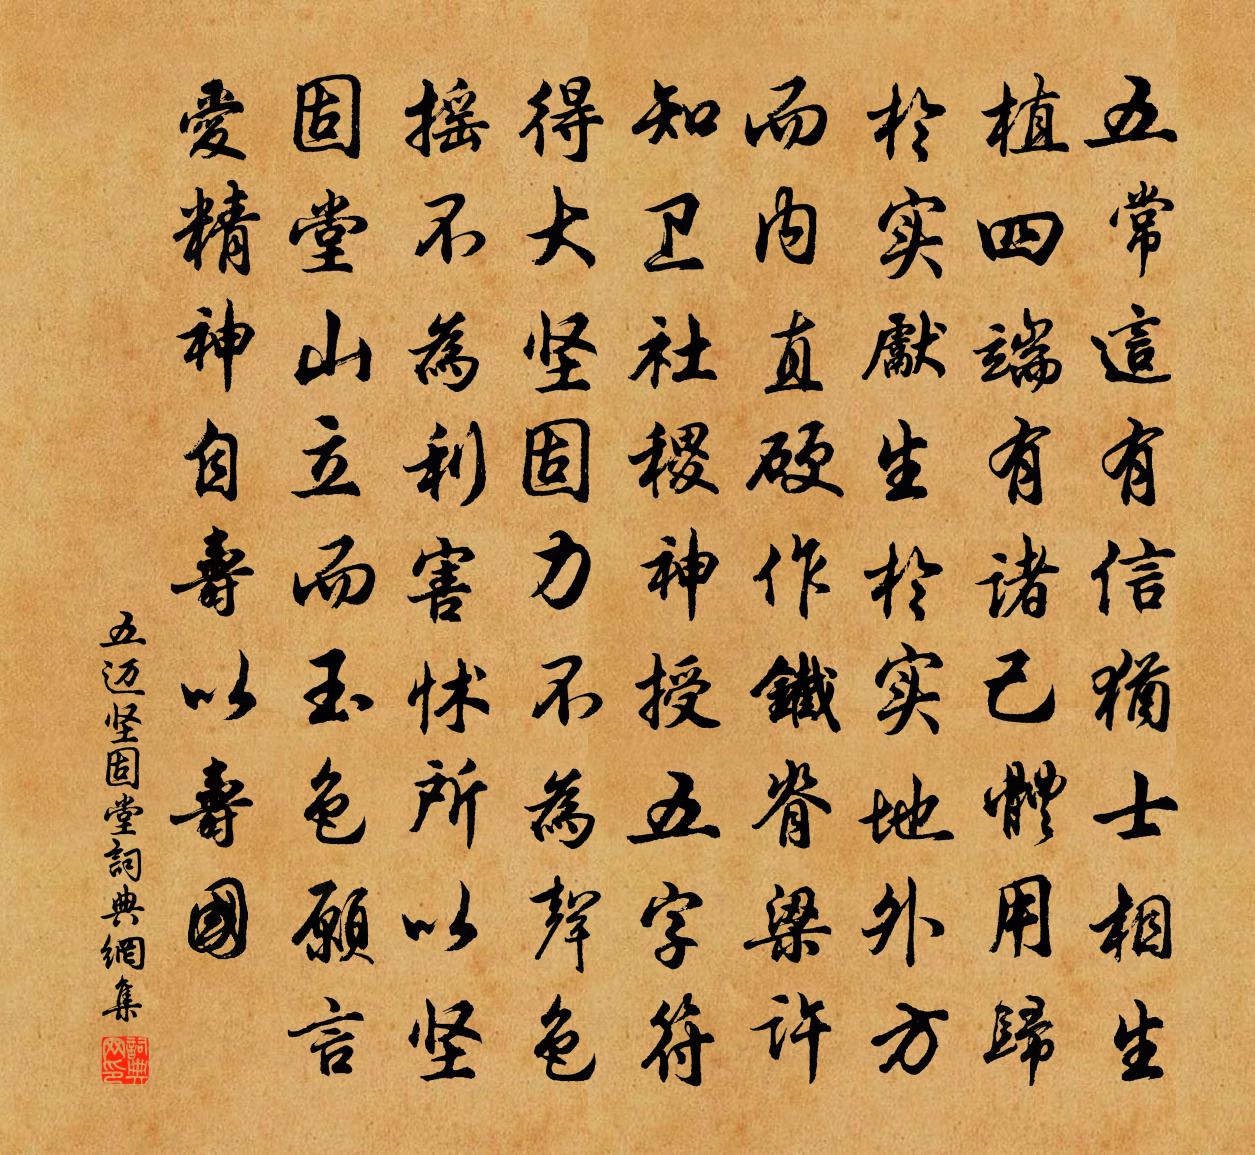 五常這有信猶士相生
植四端有诸己體用歸
於实獻生於实地外方
而内直硬作鐵脊梁许
知卫社稷神授五字符
得大坚固力不為聲色
摇不為利害怵所以坚
固堂山立而玉色願言
愛精神自壽以壽國
五迈坚固堂詞典網集
詞典网印